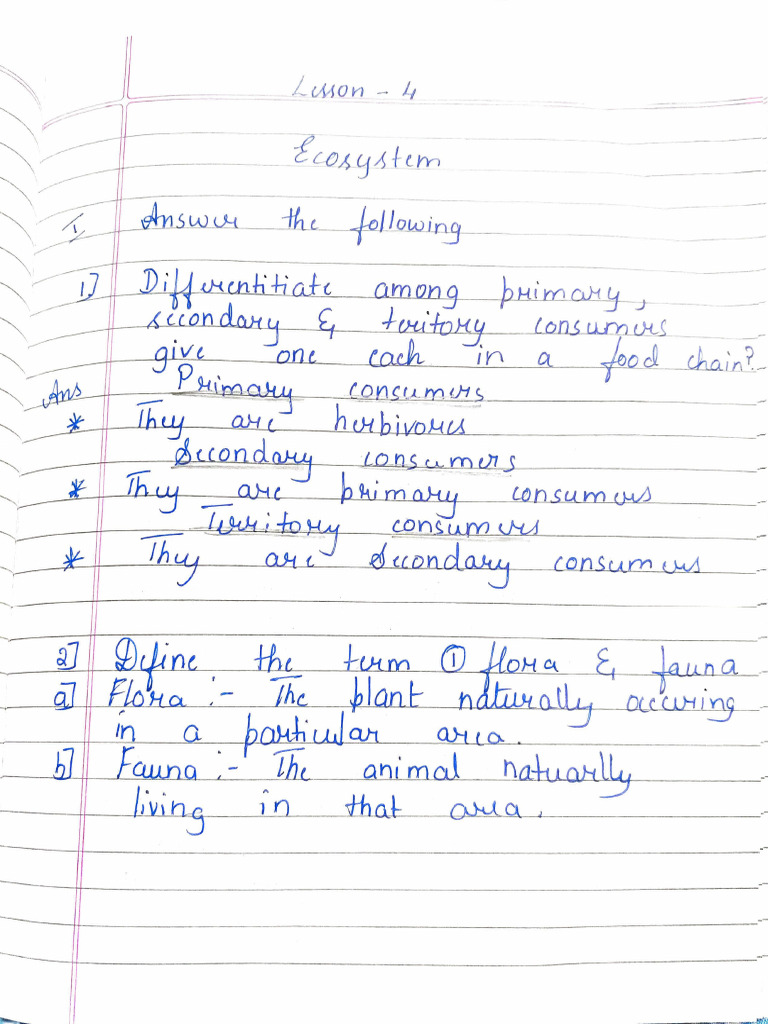 Lesson - 4
Ecosystem
I Answer the following
1] Differentitiate among primary,
secondary & teritory consumers
give one each in a food chain?
Ans Primary consumers
* They are herbivores
Secondary consumers
* They are primary consumers
Territory consumers
* They are Secondary consumers
2] Define the term ① flora & fauna
a] Flora :- The plant naturally occuring
in a particular area.
b] Fauna :- The animal natuarlly
living in that area.